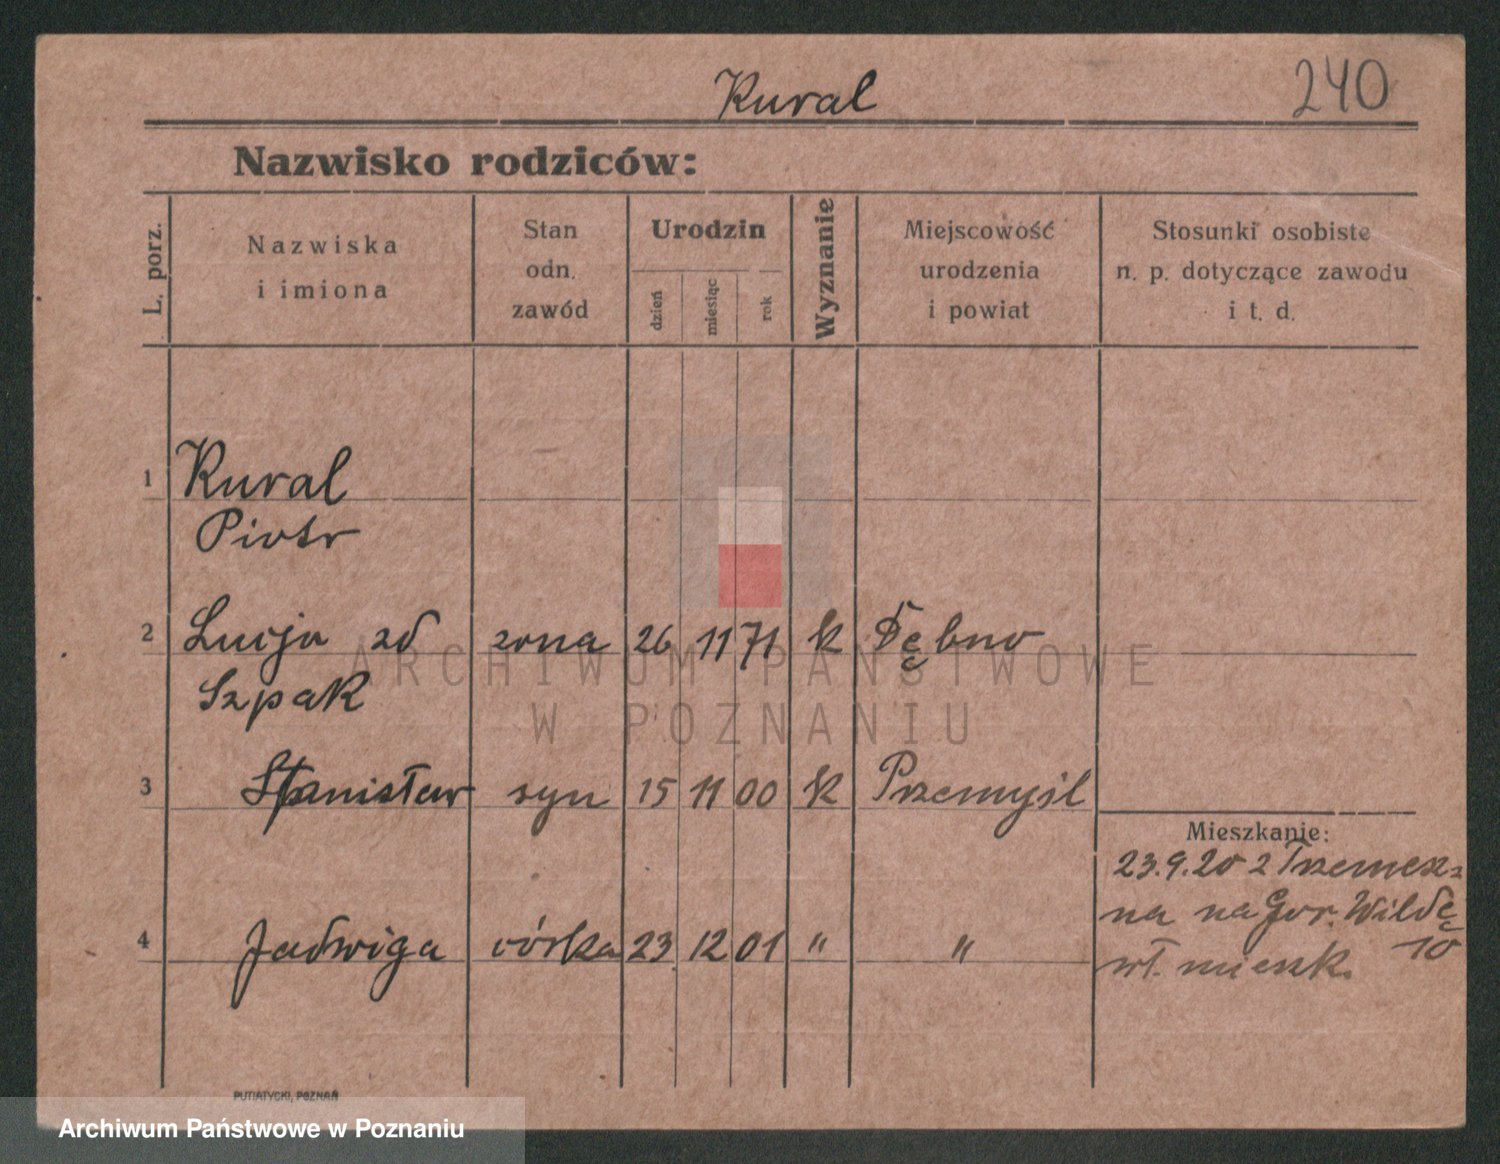 Kural
240
Nazwisko rodziców:
L. porz.
Nazwiska
i imiona
Stan
odn.
zawód
Urodzin
dzień
miesiąc
rok
Wyznanie
Miejscowość
urodzenia
i powiat
Stosunki osobiste
n. p. dotyczące zawodu
i t. d.
1 Kural
Piotr
2 Lucja zd żona 26 11 71 k Dębno
Szpak
3 Stanisław syn 15 11 00 k Przemyśl
Mieszkanie:
23.9.20 z Trzemesz-
na na Gór. Wildę
10
4 Jadwiga córka 23 12 01 " "
wł. mieszk.
PUTIATYCKI, POZNAŃ
ARCHIWUM PAŃSTWOWE
W POZNANIU
Archiwum Państwowe w Poznaniu